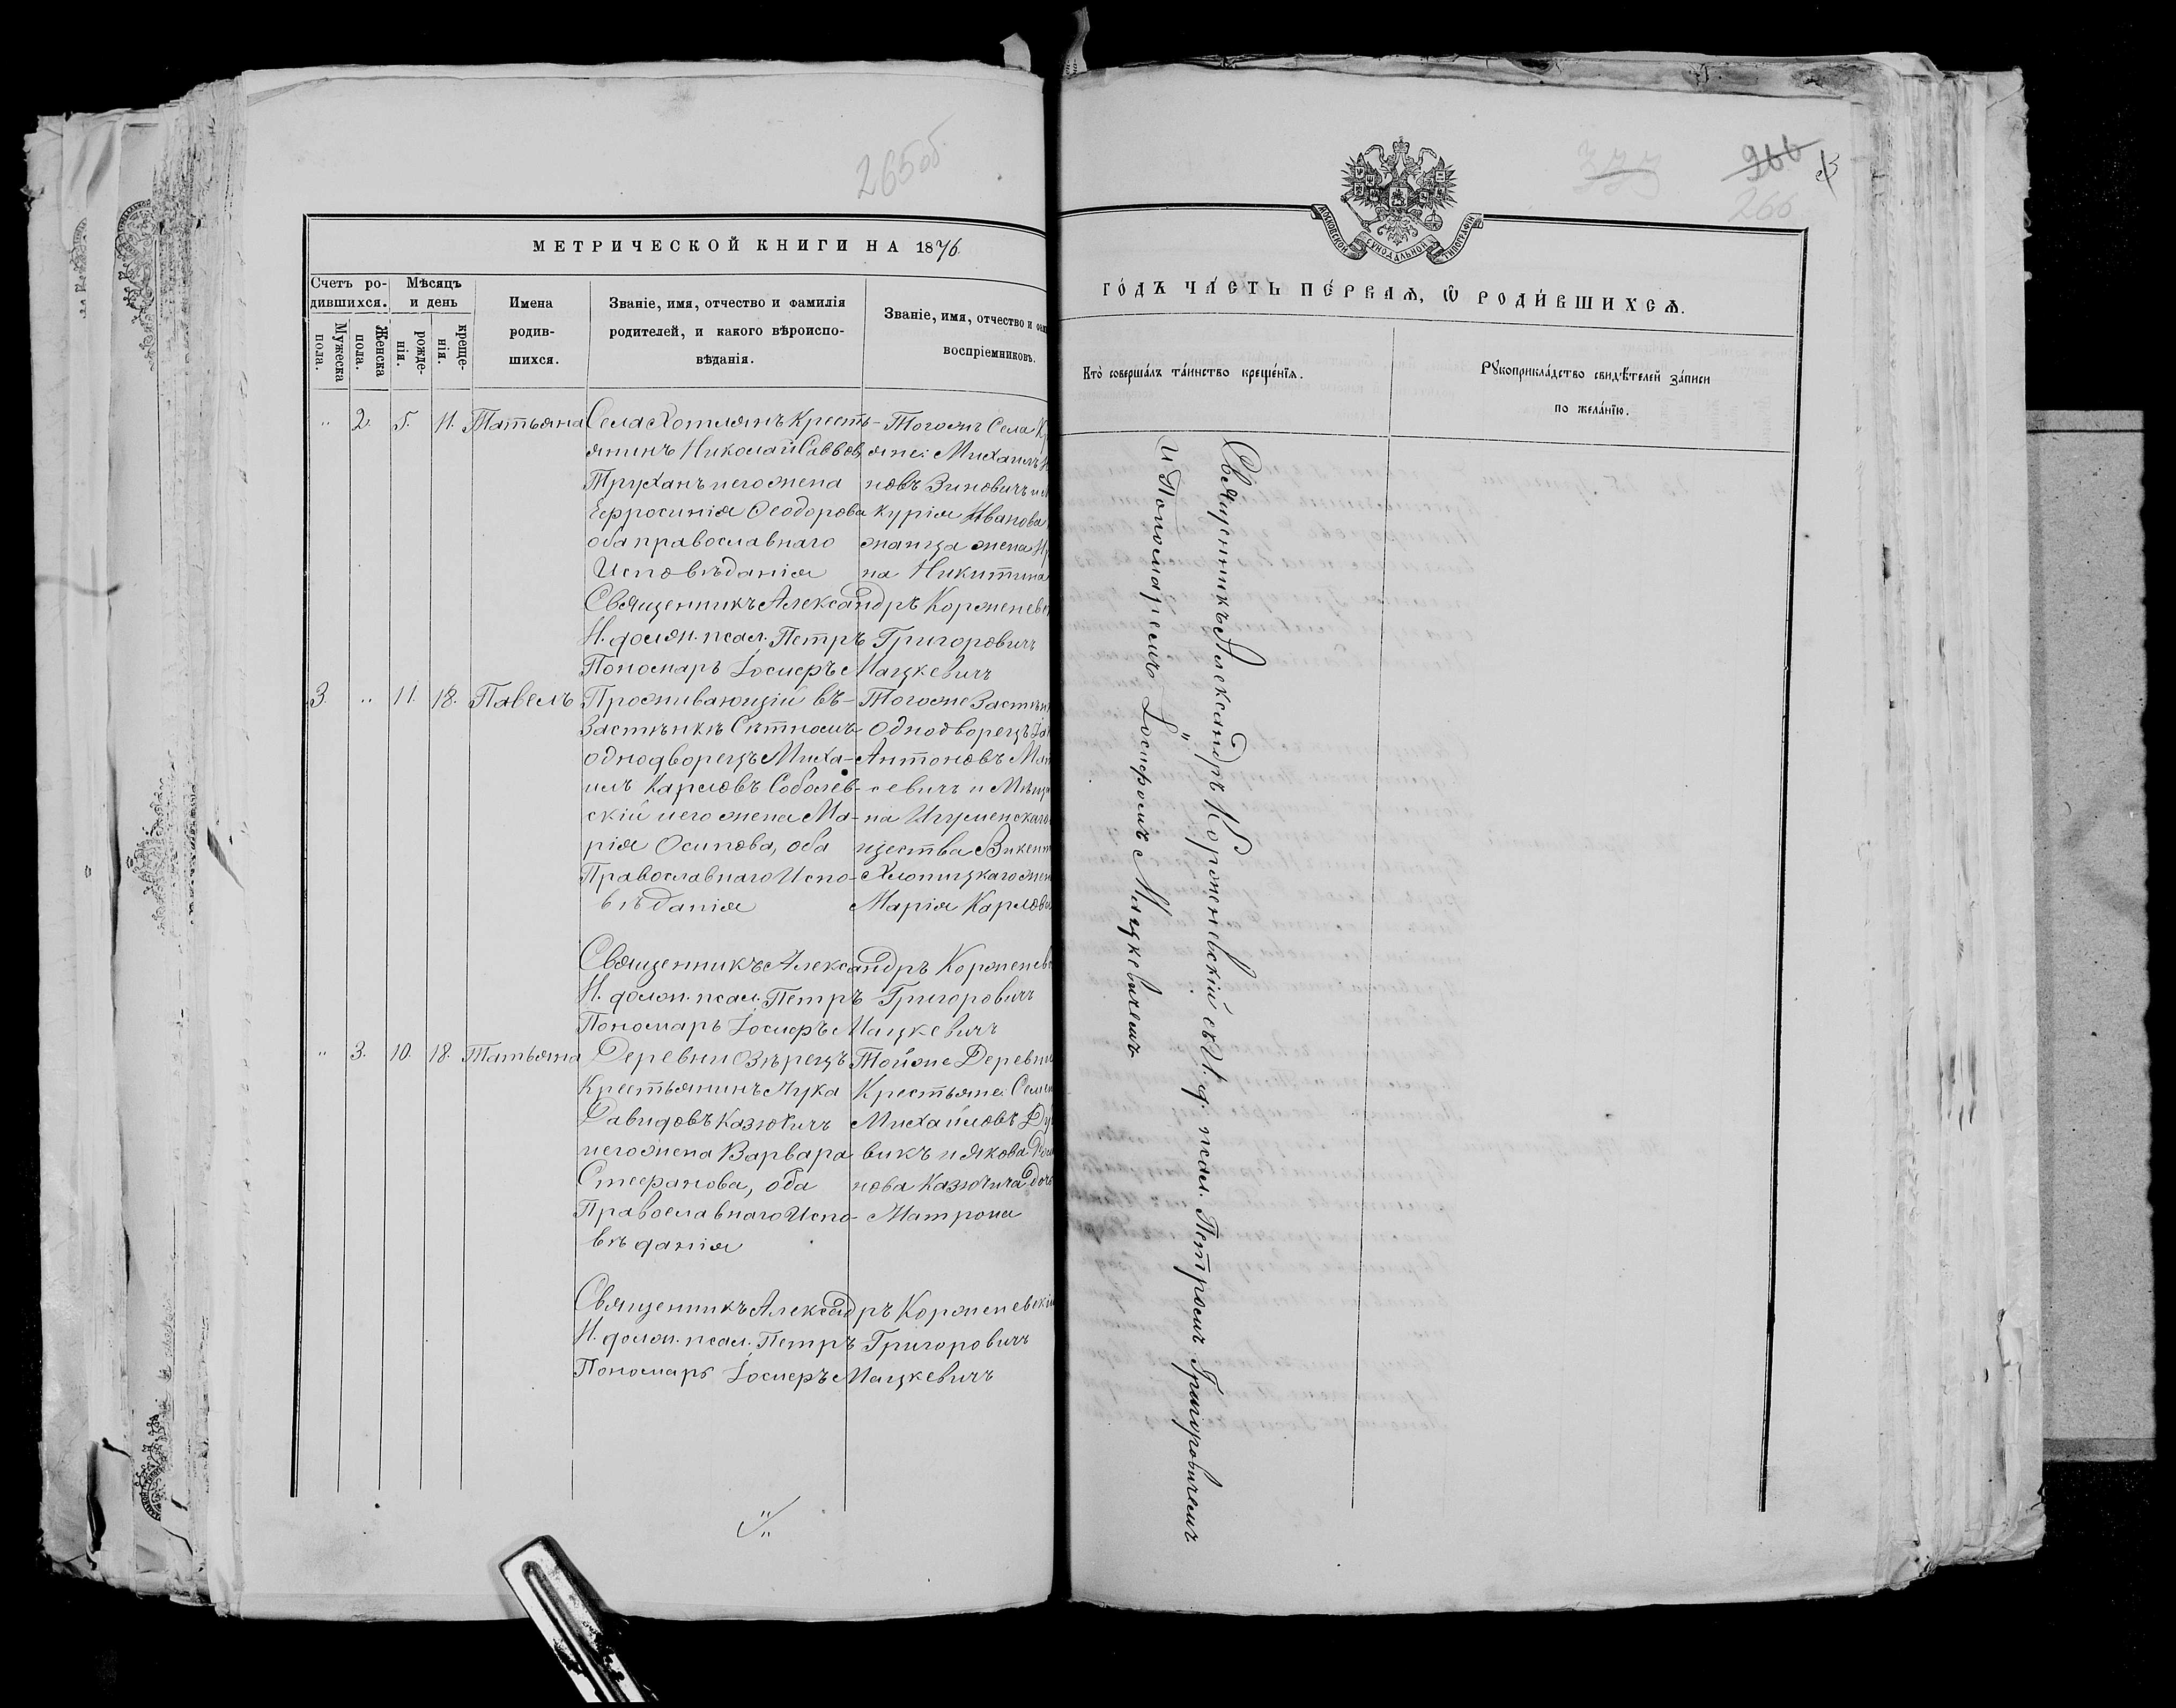 265об
МЕТРИЧЕСКОЙ КНИГИ НА 1876.
Счетъ родившихся.
Мужеска пола.
Женска пола.
Мѣсяцъ и день
рожденія.
крещенія.
Имена родившихся.
Званіе, имя, отчество и фамилія
родителей, и какого вѣроиспо-
вѣданія.
Званіе, имя, отчество и фам
воспріемниковъ.
„ 2. 5. 11. Татьяна
Села Хотлянъ Кресть-
янинъ Николай Саввовъ
Труханъ и его жена
Ефросинія Ѳеодорова
оба православнаго
Исповѣданія
Тогожъ Села Кр
яне: Михаилъ И
новъ Зиновичъ и
курія Иванова
жена
на Никитина
Священникъ Александръ Корженев
И. долж. псал. Петръ Григоровичъ
Пономарь Іосифъ Мацкевичъ
3. „ 11. 18. Павелъ
Проживающій въ
Застѣнкѣ Сѣтномъ
однодворецъ Миха-
илъ Карловъ Соболев-
скій и его жена Ма-
рія Осипова, оба
Православнаго Испо-
вѣданія
Тогоже Застѣн
Однодворецъ
Антоновъ Ма
севичъ и Мѣщ
на Игуменскаго
щества Викент
Хлопицкаго жен
Марія Карлова
Священникъ Александръ Корженев
И. долж. псал. Петръ Григоровичъ
Пономарь Іосифъ Мацкевичъ
„ 3. 10. 18. Татьяна
Деревни Озѣрецъ
Крестьянинъ Лука
Давидовъ Казючичъ
и его жена Варвара
Стефанова, оба
Православнаго Испо-
вѣданія
Тойже Деревни
Крестьяне: Семен
Михайловъ Ду
викъ и Якова
нова Казючича дочь
Матрона
Священникъ Александръ Корженевскій
И. долж. псал. Петръ Григоровичъ
Пономарь Іосифъ Мацкевичъ
377
266
266
МОСКОВСКОЙ СУНОДАЛЬНОЙ ТИПОГРАФІИ
ГО́ДЪ ЧА́СТЬ ПЕ́РВАѦ, Ѽ РОДИ́ВШИХСѦ.
Кто̀ соверша́лъ та́инство креще́нїѧ.
Рꙋкоприкла́дство свидѣ́телей за́писи
по жела́нїю.
Священникъ Александръ Корженевскій съ И. д. псал. Петромъ Григоровичемъ
и Пономаремъ Іосифомъ Мацкевичемъ